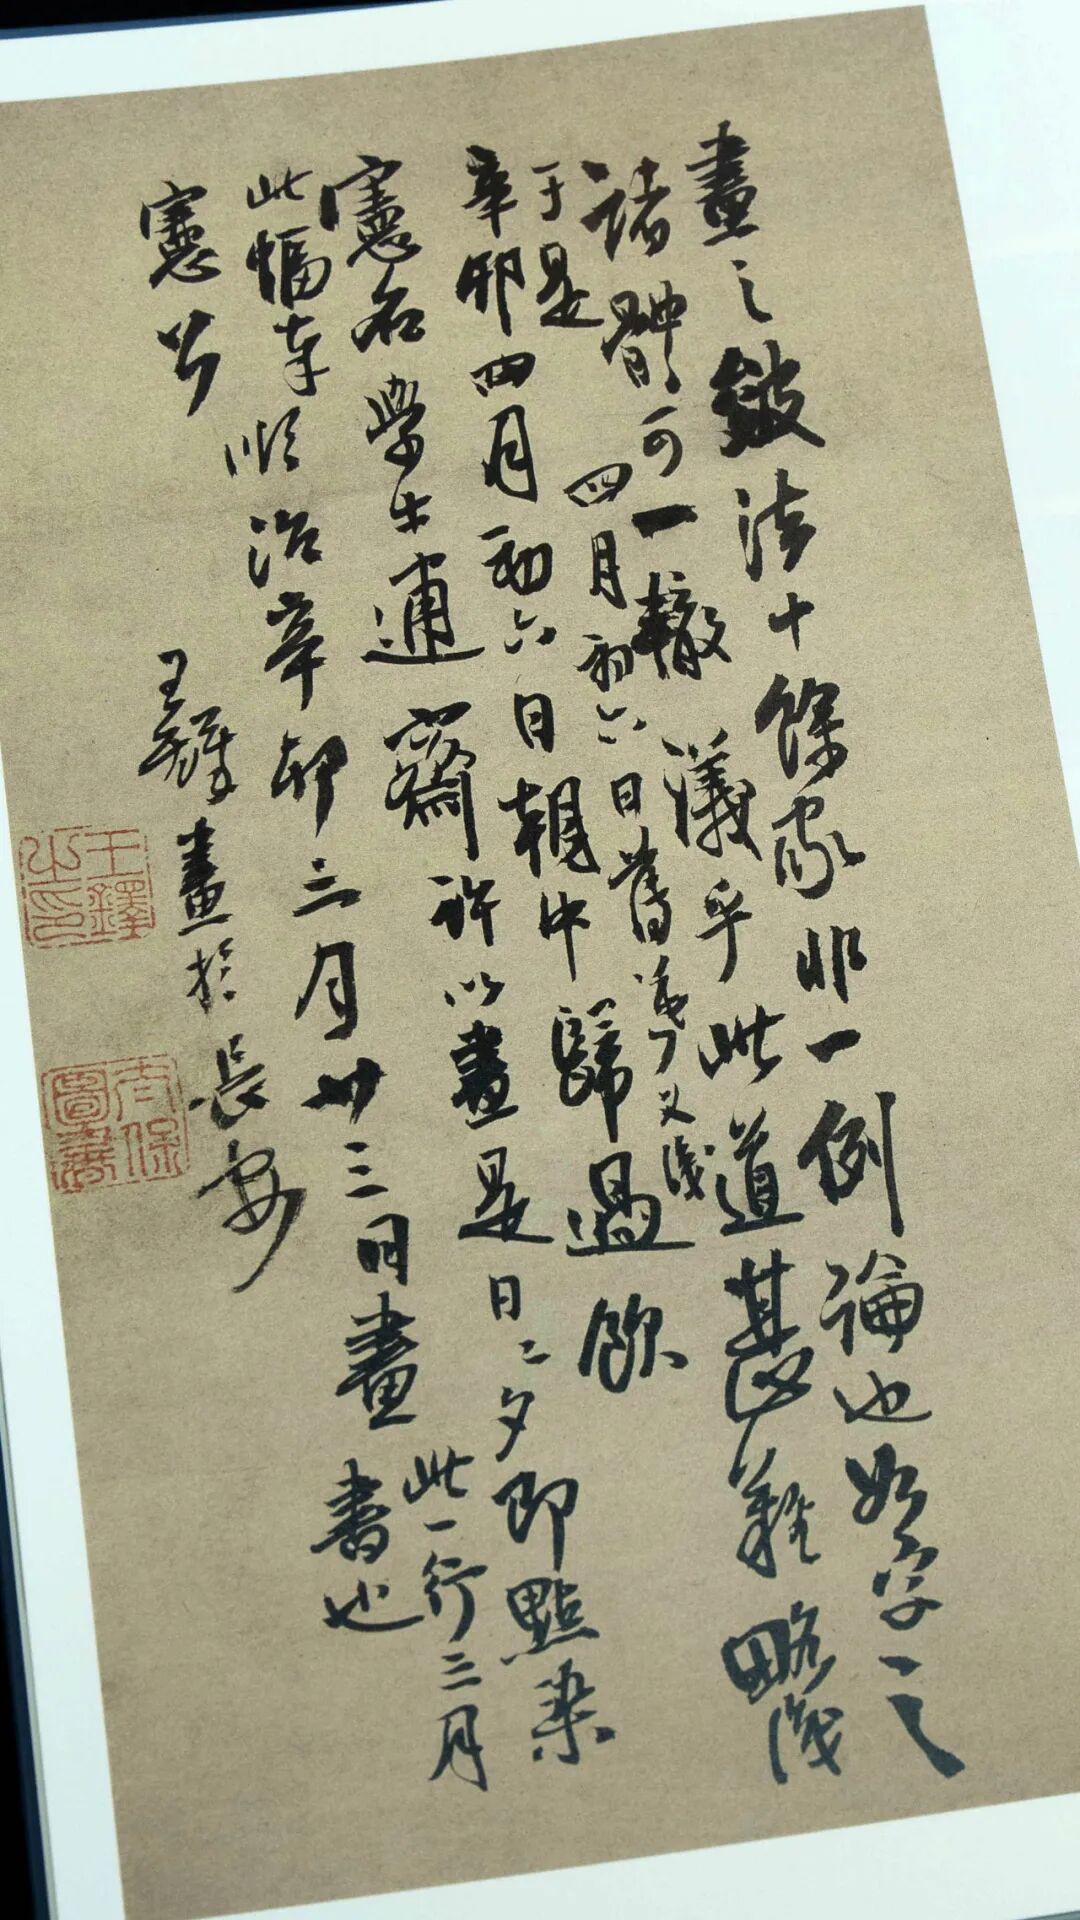 畫之皴法十餘家非一例論也如字之
諸體可一轍議乎此道甚難略識
于是
四月初六日舊
又識
辛卯四月初六日朝中歸過飲
憲石學士蓮齋許以畫是日二夕即點染
此幅本順治辛卯三月廿三日畫
此一行三月
書也
憲公
王鐸畫於長安
王鐸之印
太保圖書